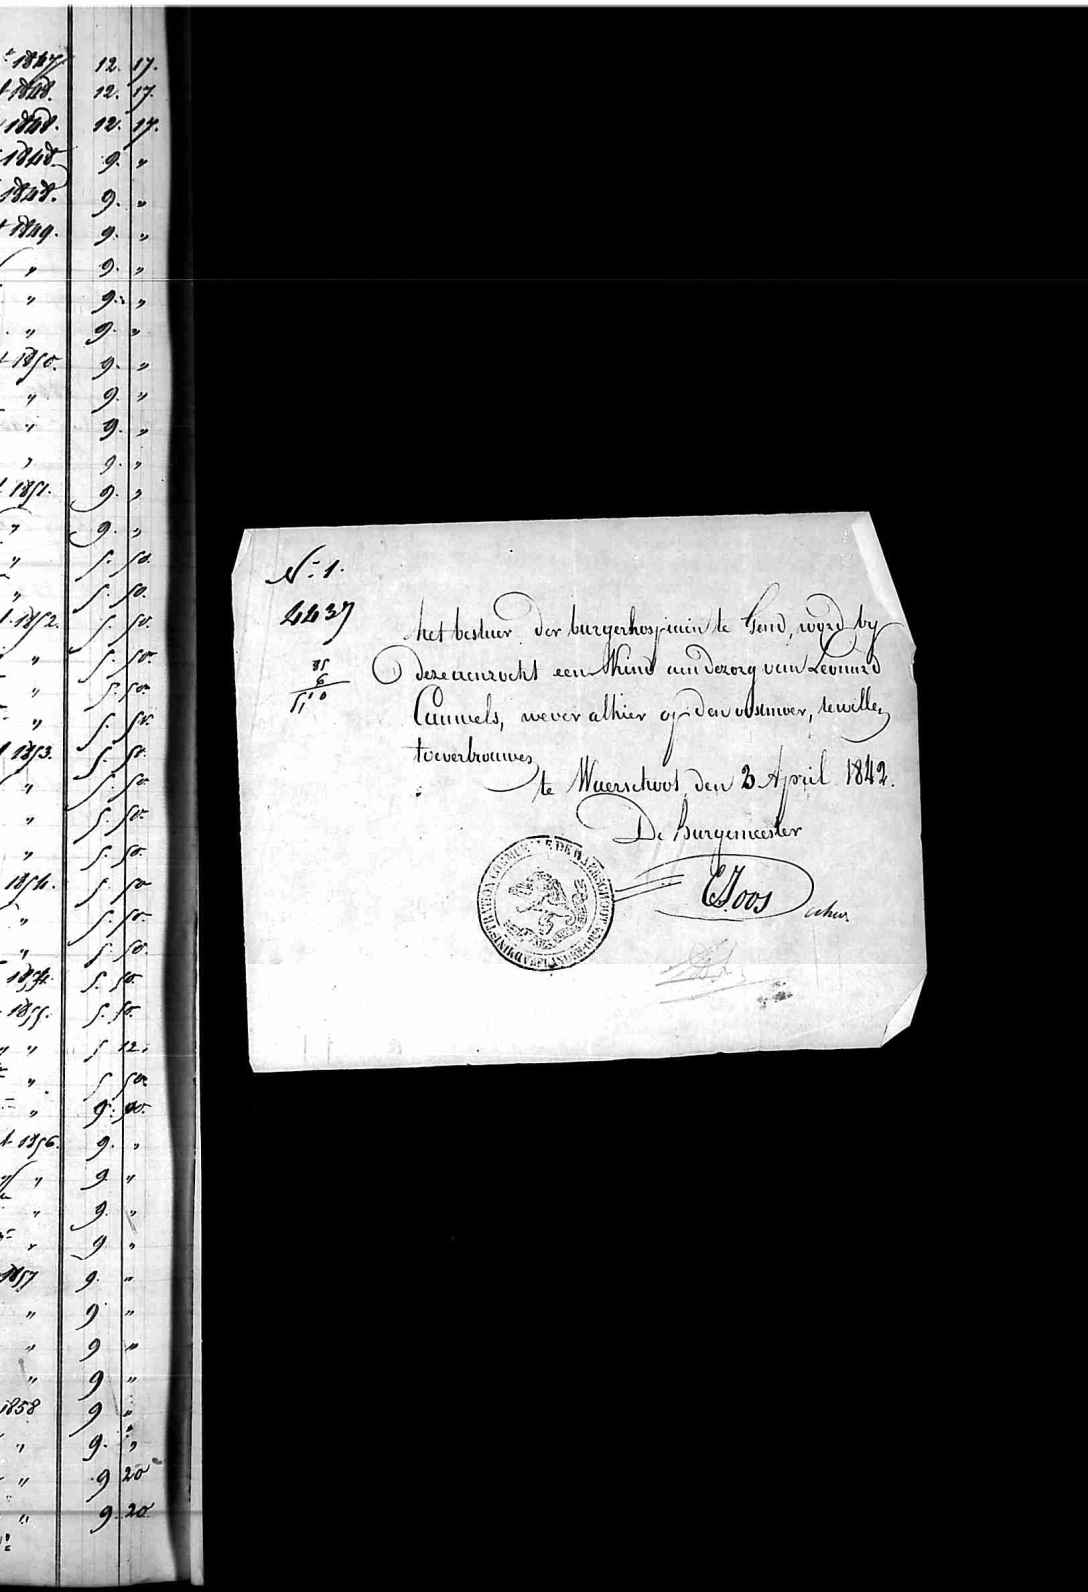 1847 12. 17.
1848. 12. 17.
1848. 12. 17.
1848. 9. "
1848. 9. "
1849. 9. "
" 9. "
" 9. "
" 9. "
1850. 9. "
" 9. "
" 9. "
" 9. "
1851. 9. "
" 9. "
" 5. 50.
" 5. 50.
1852. 5. 50.
" 5. 50.
" 5. 50.
" 5. 50.
1853. 5. 50.
" 5. 50.
" 5. 50.
" 5. 50.
1854. 5. 50
" 5. 50.
" 5. 50.
5. 50.
1855. 5. 50.
" " 5 12.
" 5 50.
" 9.
1856. 9. "
" 9 "
" 9. "
" 9 "
1857 9. "
" 9 "
" 9 "
" 9 "
1858 9 "
" 9. "
" 9 20
" 9 20
N.º 1.
4437
85
6
510
het bestuer der burgerhospicien te Gend, word by
deze aenzocht een Kind aen de zorg van Leonard
Cauwels, wever alhier op den oostmoer, te willen
toevertrouwen
te Waerschoot, den 3 April 1842.
De Burgemeester
CJoos